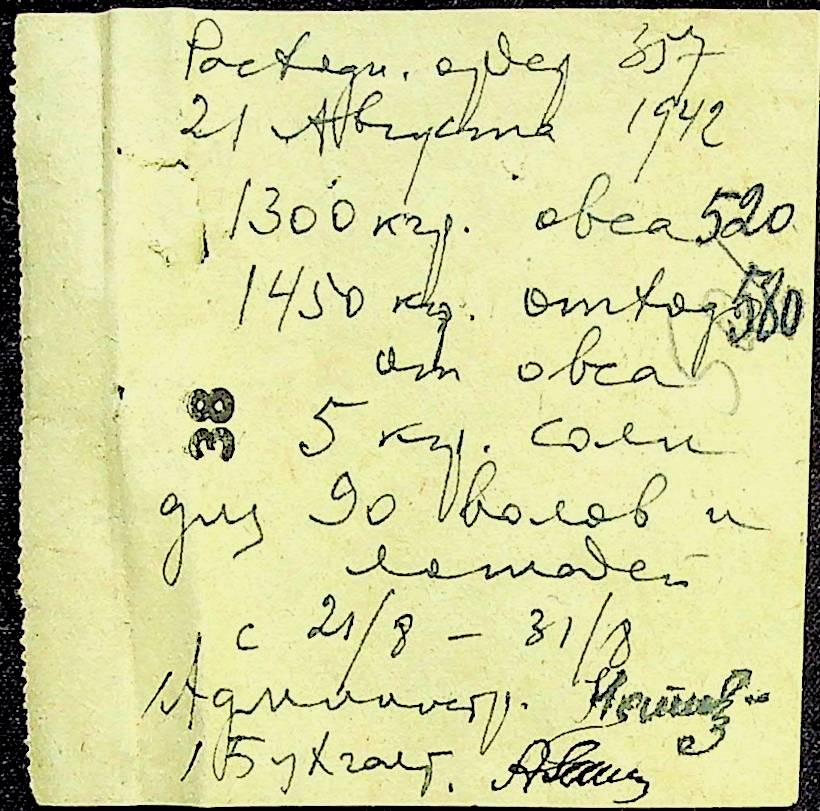 Расходн. ордер 357
21 Августа 1942
1300 кгр. овса 520
1450 кгр. отход. 580
от овса
38
5 кгр. соли
для 90 волов и
лошадей
с 21/8 – 31/8
Администр.
Бухгалт.